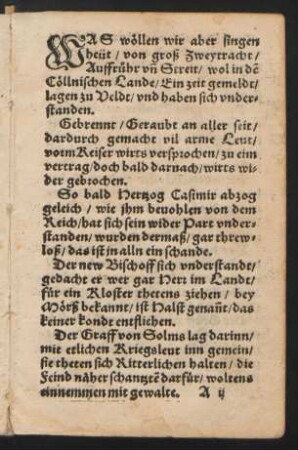 WAS wöllen wir aber singen
heüt / von groß Zweytracht /
Auffrühr vñ Streit / wol in dē
Cöllnischen Lande / Ein zeit gemeldt /
lagen zu Veldt / vnd haben sich vnder-
standen.
Gebrennt / Geraubt an aller seit /
dardurch gemacht vil arme Leut /
vorm Keiser wirts versprochen / zu eim
vertrag / doch bald darnach / wirts wi-
der gebrochen.
So bald Hertzog Casimir abzog
geleich / wie jhm beuohlen von dem
Reich / hat sich sein wider Part vnder-
standen / wurden dermaß / gar threw-
loß / das ist in alln ein schande.
Der new Bischoff sich vnderstandt /
gedacht er wer gar Herr im Landt /
für ein Kloster thetens ziehen / bey
Mörß bekannt / ist Halst genañt / das
keiner kondt entfliehen.
Der Graff von Solms lag darinn /
mit etlichen Kriegsleut inn gemein /
sie theten sich Ritterlichen halten / die
Feind näher schantztē darfür / woltens
einnemmen mit gewalte. A ij